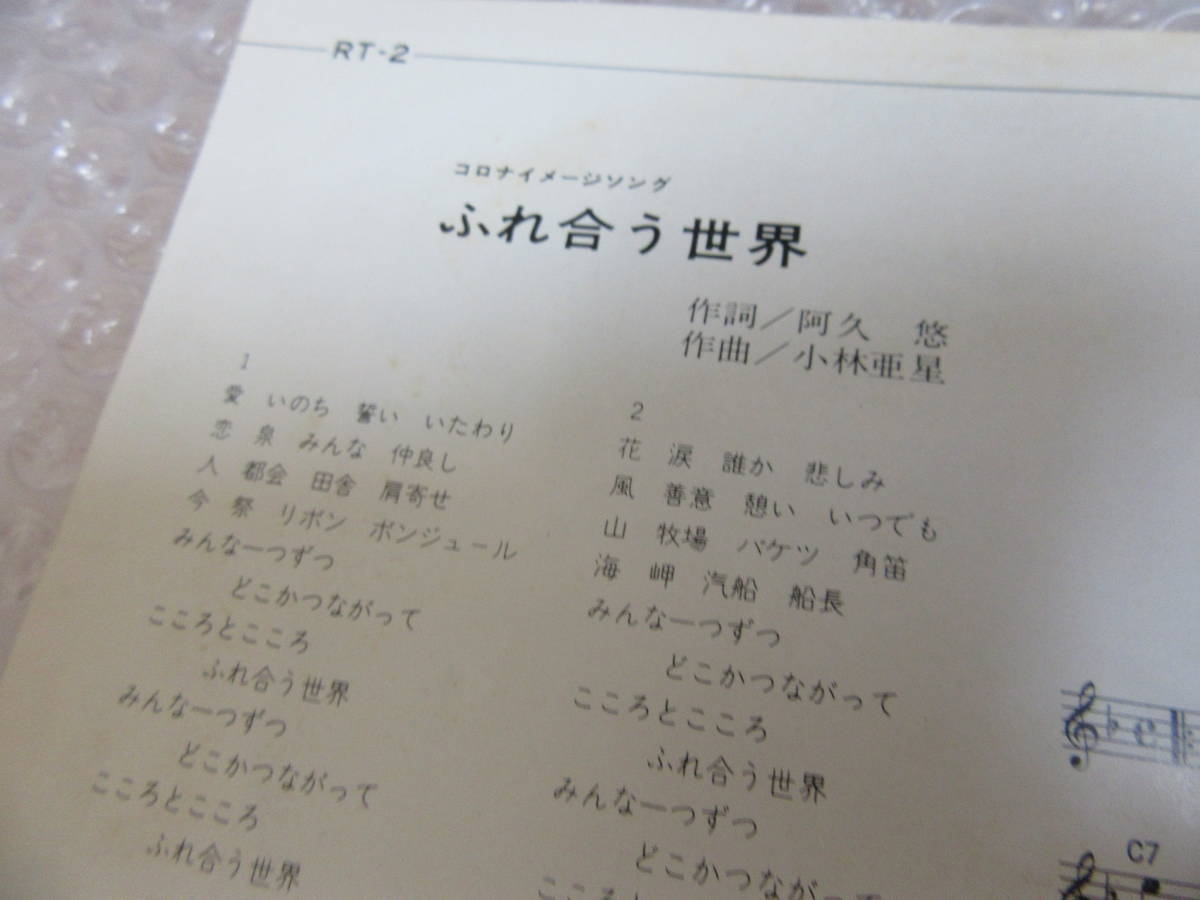 RT-2
コロナイメージソング
ふれ合う世界
作詞／阿久 悠
作曲／小林亜星
1
愛 いのち 誓い いたわり
恋 泉 みんな 仲良し
人 都会 田舎 肩寄せ
今 祭 リボン ボンジュール
みんな一つずつ
どこかつながって
こころとこころ
ふれ合う世界
みんな一つずつ
どこかつながって
こころとこころ
ふれ合う世界
2
花 涙 誰か 悲しみ
風 善意 憩い いつでも
山 牧場 バケツ 角笛
海 岬 汽船 船長
みんな一つずつ
どこかつながって
こころとこころ
ふれ合う世界
みんな一つずつ
どこかつながって
C7